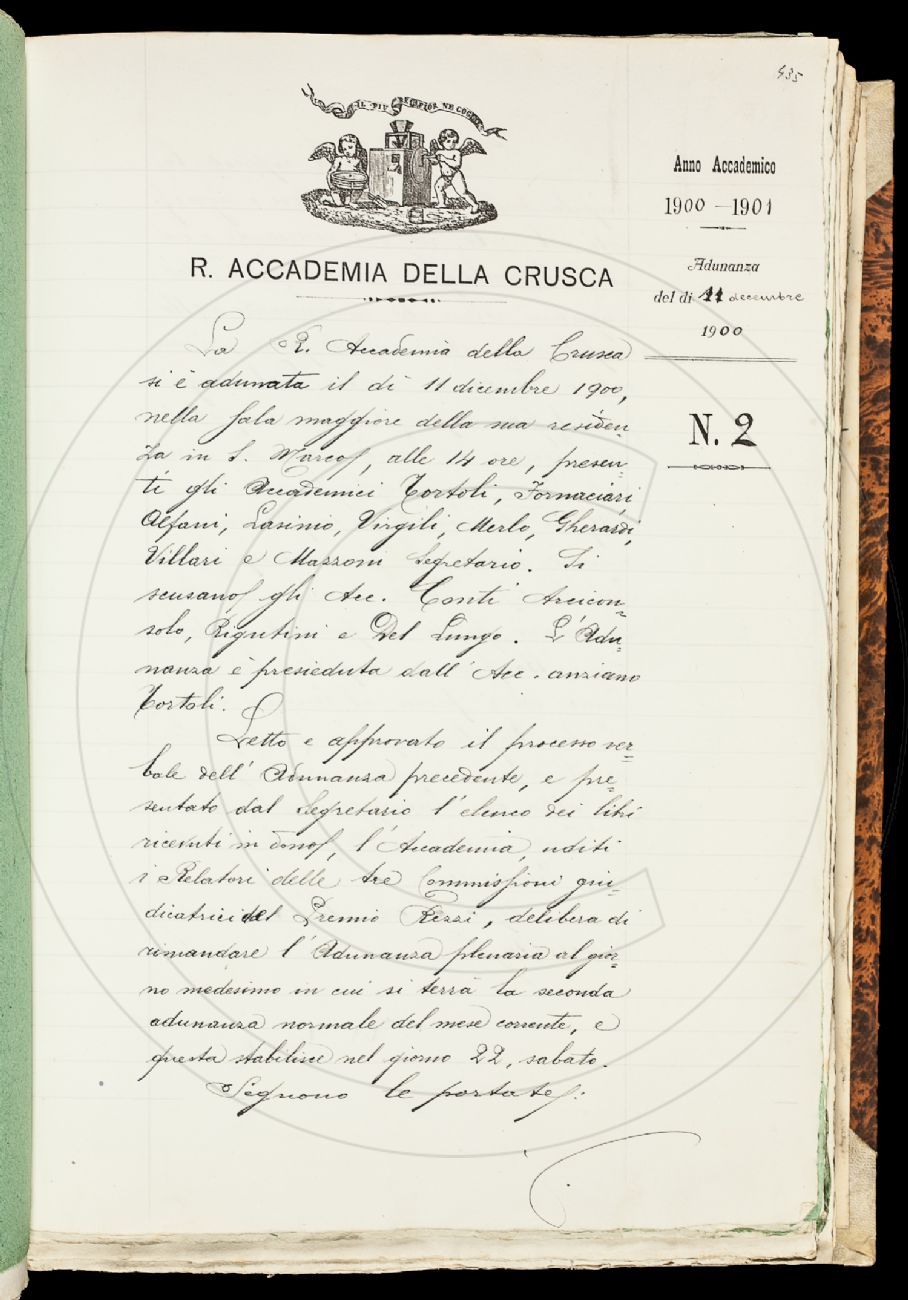 435
IL PIÙ BEL FIOR NE COGLIE
Anno Accademico
1900 - 1901
Adunanza
del dì 11 decembre
1900
N. 2
R. ACCADEMIA DELLA CRUSCA
La R. Accademia della Crusca
si è adunata il dì 11 dicembre 1900,
nella sala maggiore della sua residen-
za in S. Marco, alle 14 ore, presen-
ti gli Accademici Tortoli, Fornaciari,
Alfani, Lasinio, Virgili, Merlo, Gherardi,
Villari e Mazzoni Segretario. Si
scusano gli Acc. Conti Arcicon-
solo, Rigutini e Del Lungo. L'Adu-
nanza è presieduta dall'Acc. anziano
Tortoli.
Letto e approvato il processo ver-
bale dell'Adunanza precedente, e pre-
sentato dal Segretario l'elenco dei libri
ricevuti in dono, l'Accademia, uditi
i Relatori delle tre Commissioni giu-
dicatrici del Premio Rezzi, delibera di
rimandare l'Adunanza plenaria al gior-
no medesimo in cui si terrà la seconda
adunanza normale del mese corrente, e
questa stabilisce nel giorno 22, sabato.
Seguono le portate: